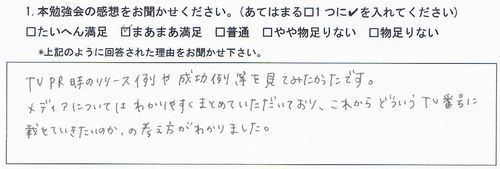 1. 本勉強会の感想をお聞かせください。(あてはまる□1つに✔を入れてください)
□たいへん満足 ☑まあまあ満足 □普通 □やや物足りない □物足りない
*上記のように回答された理由をお聞かせ下さい。
TV PR時のリリース例や成功例等を見てみたかったです。
メディアについてはわかりやすくまとめていただいており、これからどういうTV番号に
載せていきたいのか、の考え方がわかりました。